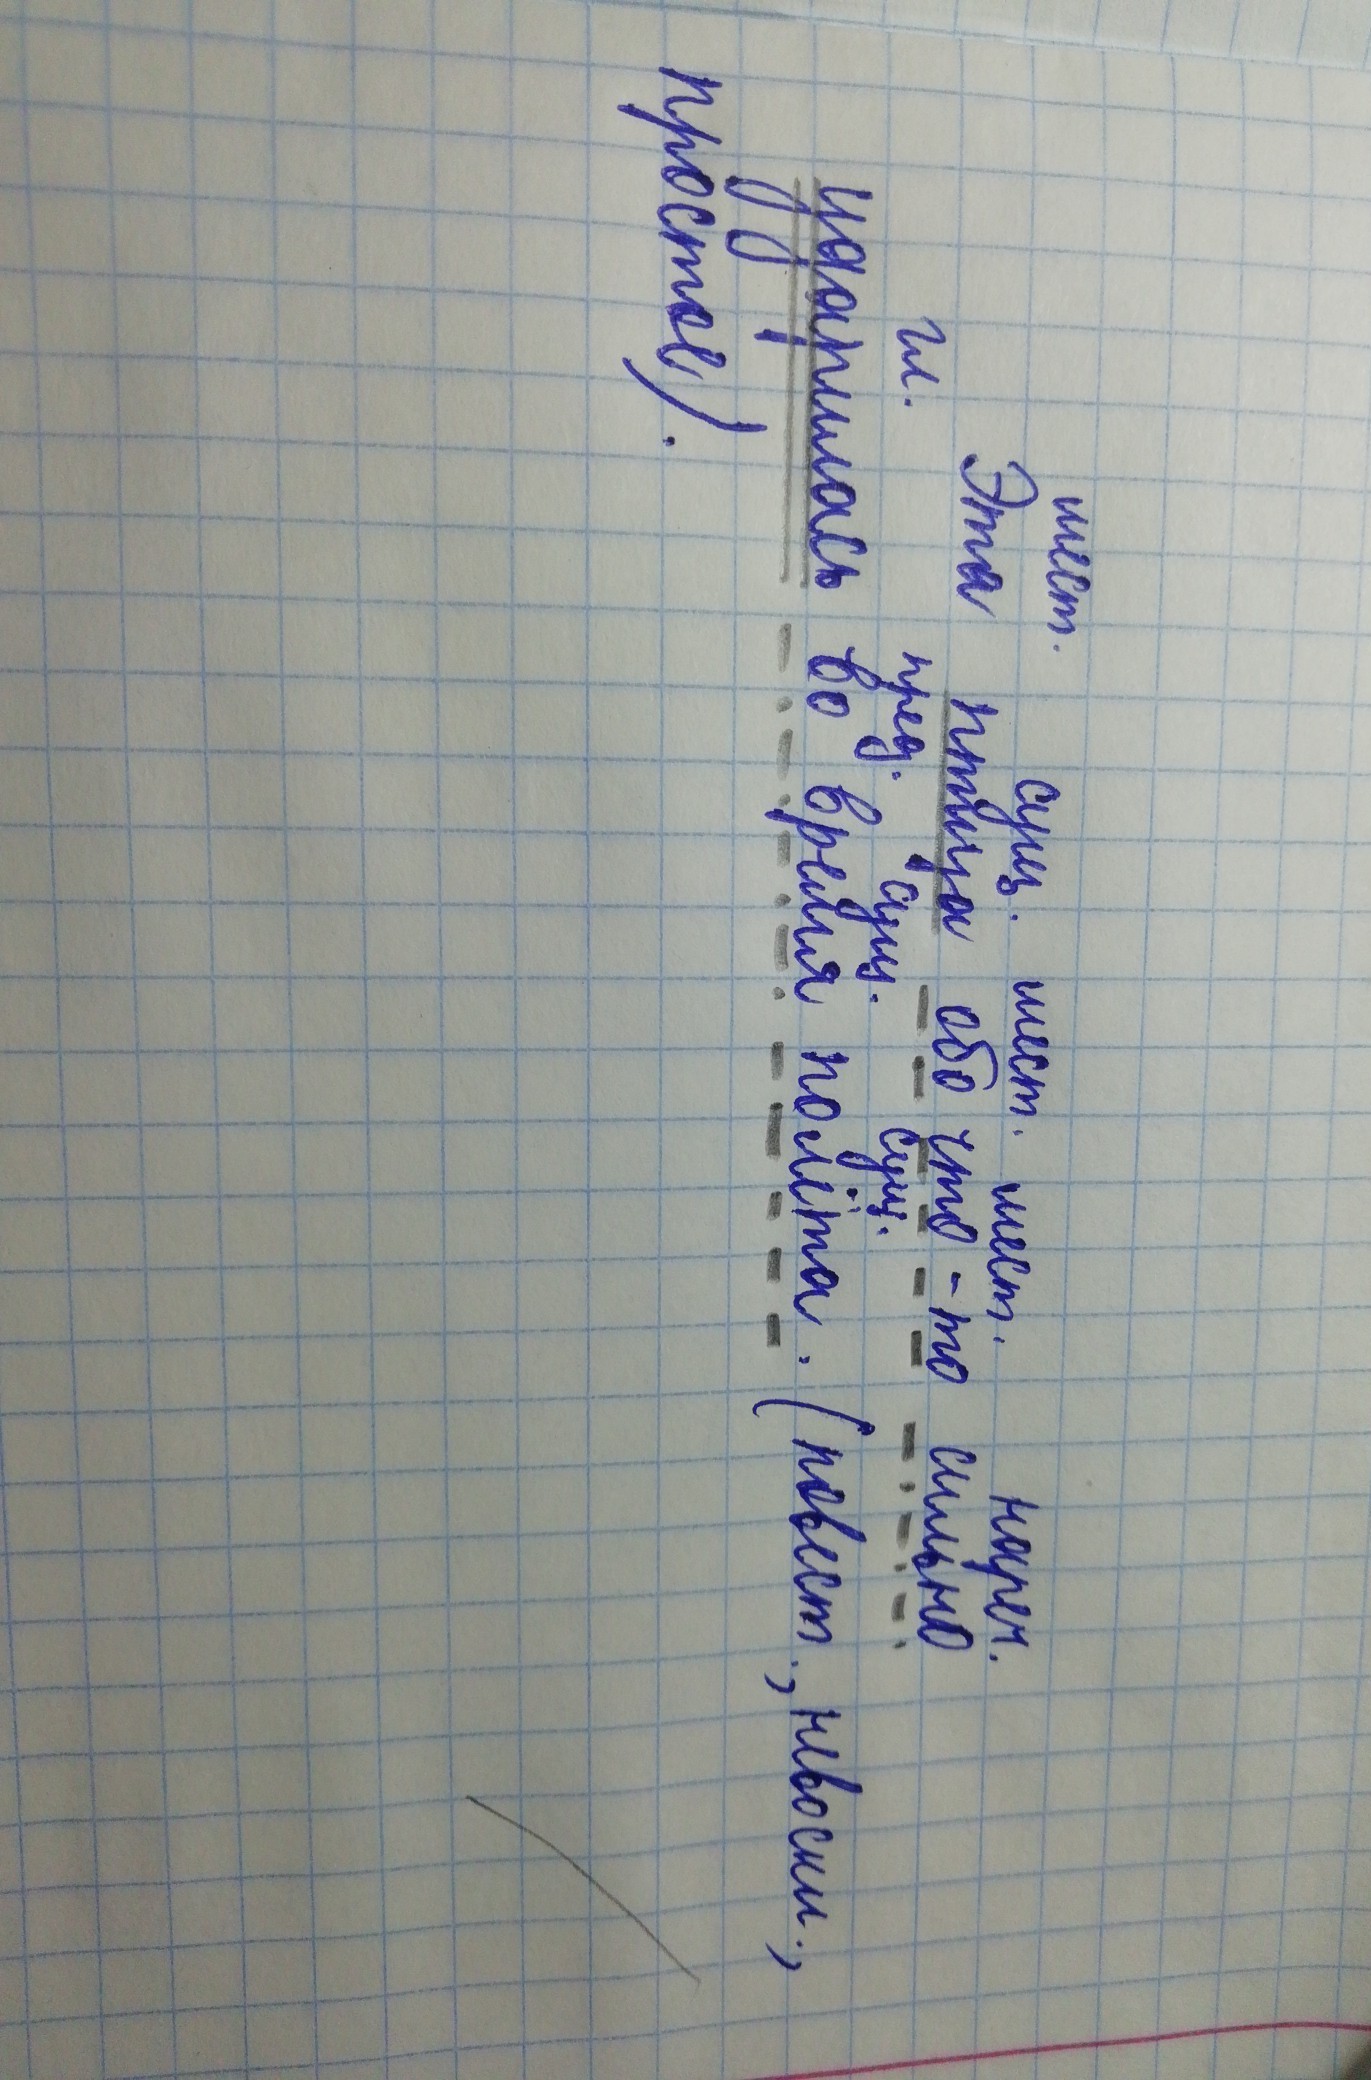 мест. сущ. мест. мест. нареч.
Эта птица обо что-то сильно
гл. пред. сущ. сущ.
ударилась во время полёта. (повест., невоскл.,
простое).